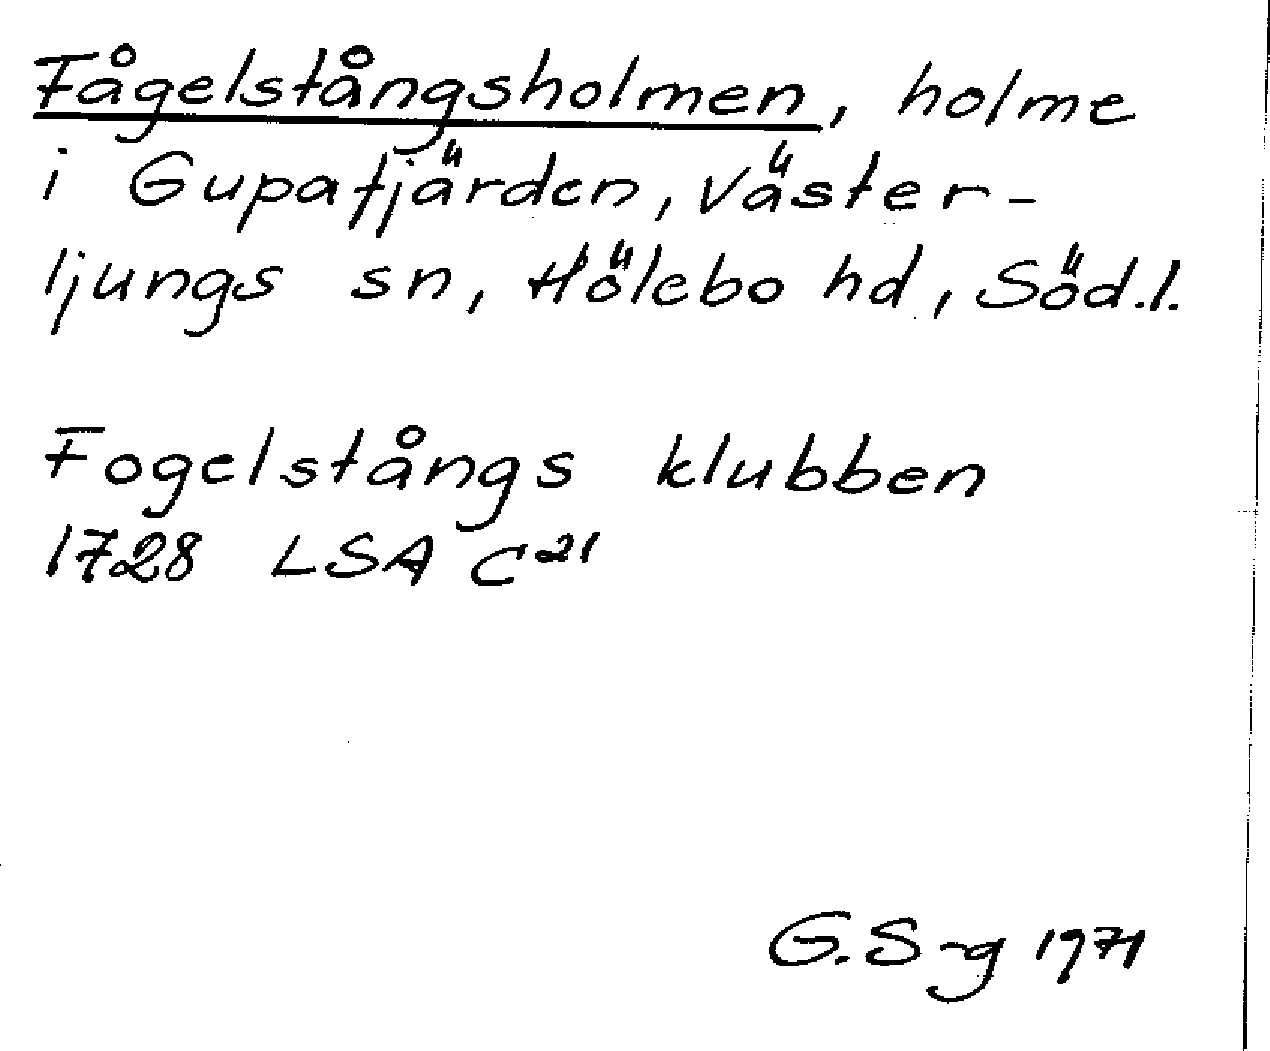 Fågelstångsholmen, holme
i Gupafjärden, Väster-
ljungs sn, Hölebo hd, Söd.l.
Fogelstångs klubben
1728 LSA C²¹
G. S-g 1971